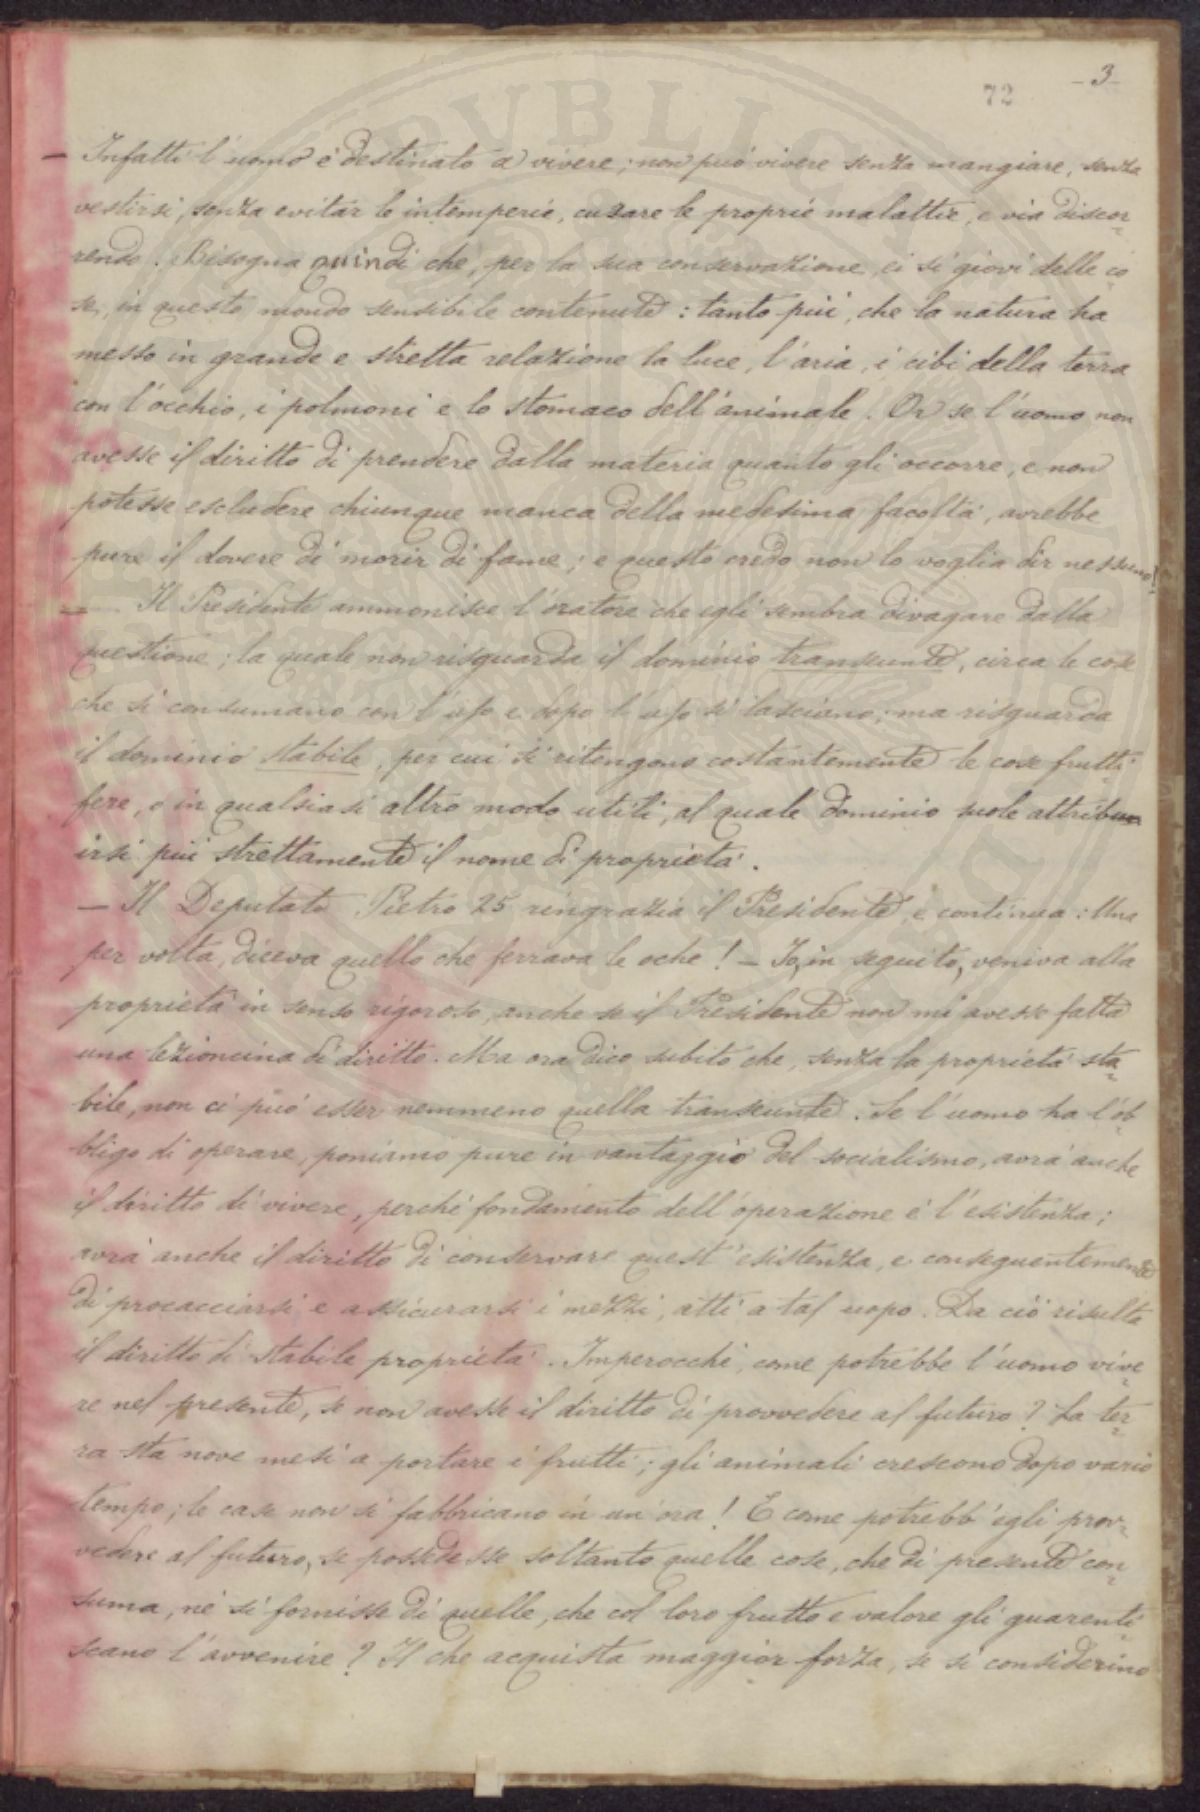 72 - 3 -
— Infatti l'uomo è destinato a vivere; non può vivere senza mangiare, senza
vestirsi, senza evitar le intemperie, curare le proprie malattie, e via discor=
rendo. Bisogna quindi che, per la sua conservazione, ei si giovi delle co=
se, in questo mondo sensibile contenute: tanto più, che la natura ha
messo in grande e stretta relazione la luce, l'aria, i cibi della terra
con l'occhio, i polmoni e lo stomaco dell'animale. Or se l'uomo non
avesse il diritto di prendere dalla materia quanto gli occorre, e non
potesse escludere chiunque manca della medesima facoltà, avrebbe
pure il dovere di morir di fame; e questo credo non lo voglia dir nessuno!
— Il Presidente ammonisce l'oratore che egli sembra divagare dalla
questione; la quale non risguarda il dominio transeunte, circa le cose
che si consumano con l'uso e dopo l'uso si lasciano; ma risguarda
il dominio stabile, per cui si ritengono costantemente le cose frutti=
fere, o in qualsiasi altro modo utili, al quale dominio suole attribu
irsi più strettamente il nome di proprietà.
— Il Deputato Pietro 25 ringrazia il Presidente, e continua: Una
per volta, diceva quello che ferrava le oche! — Io, in seguito, veniva alla
proprietà in senso rigoroso, anche se il Presidente non mi avesse fatta
una lezioncina di diritto. Ma ora dico subito che, senza la proprietà sta=
bile, non ci può esser nemmeno quella transeunte. Se l'uomo ha l'ob=
bligo di operare, poniamo pure in vantaggio del socialismo, avrà anche
il diritto di vivere, perché fondamento dell'operazione è l'esistenza;
avrà anche il diritto di conservare quest'esistenza, e conseguentemente
di procacciarsi e assicurarsi i mezzi, atti a tal uopo. Da ciò risulta
il diritto di stabile proprietà. Imperocché, come potrebbe l'uomo vive=
re nel presente, se non avesse il diritto di provvedere al futuro? La ter=
ra sta nove mesi a portare i frutti; gli animali crescono dopo vario
tempo; le case non si fabbricano in un'ora! E come potrebb'egli prov=
vedere al futuro, se possedesse soltanto quelle cose, che di presente con=
suma, né si fornisse di quelle, che col loro frutto e valore gli guarenti=
scano l'avvenire? Il che acquista maggior forza, se si considerino